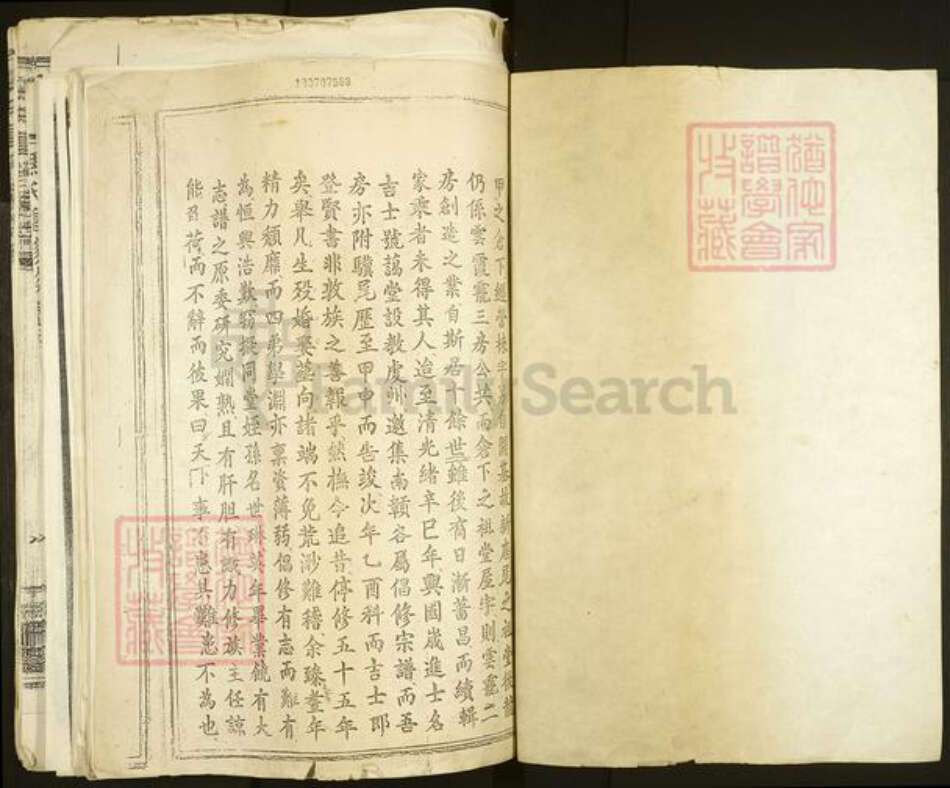 133767568
甲之倉下
仍係雲霞靉三房公共而倉下之祖堂屋宇則雲靉二
房創造之業自斯居十餘世雖後裔日漸蕃昌而續輯
家乘者未得其人迨至清光緒辛巳年興國歲進士名
吉士號藹堂設教虔州邀集南贛各屬倡修宗譜而吾
房亦附驥尾歷至甲申而告竣次年乙酉科而吉士即
登賢書非敦族之善報乎然撫今追昔停修五十五年
矣舉凡生歿婚娶塟向諸端不免荒渺難稽余臻耋年
精力頹靡而四弟學淵亦稟資薄弱倡修有志而難有
為恒興浩歎窃擬同堂姪孫名世琳英年畢業饒有大
志譜之原委研究嫻熟且有肝胆有識力修族主任諒
能召荷而不辭而彼果曰天下事不患其難患不為也
猶他家
譜學會
收藏
FamilySearch